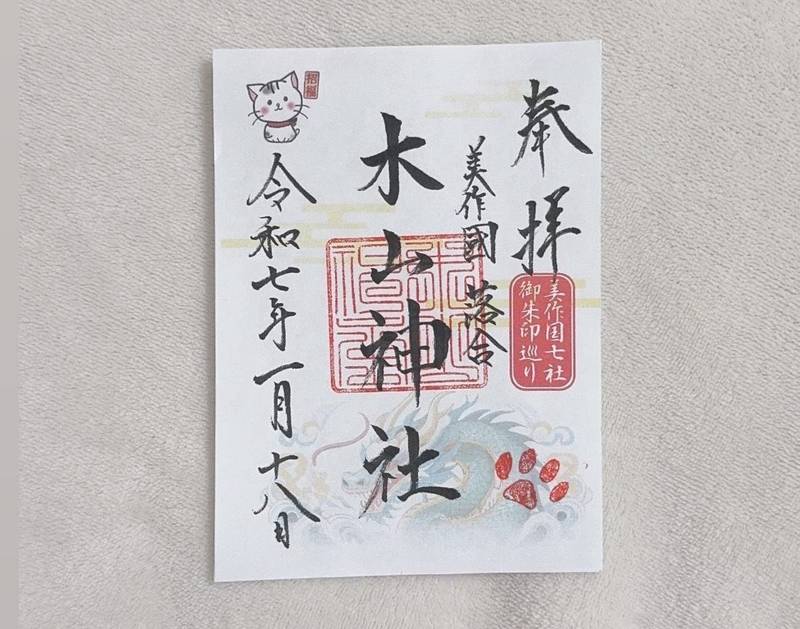 奉拝
美作国七社
御朱印巡り
美作國 落合
木山神社
招福
令和七年一月十八日